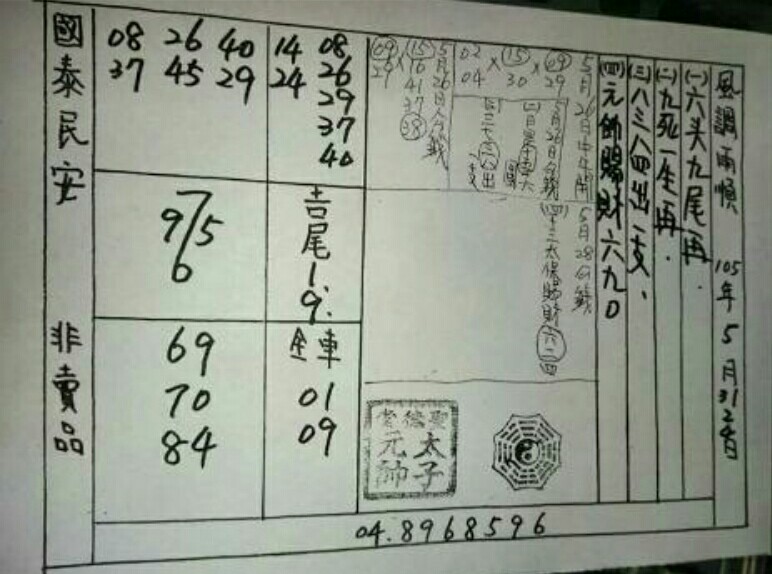 風調雨順 105年 5月31日
(一)六头九尾再.
(二)九死一生再.
(三)八三八四出一支.
(四)元帥賜財六九0
5月26日中午開
09 29
15 30
02 04
5月28日
(四)十三太保賜財 六二四
5月26日
15 16 41 37 38
09 29
08 26 40
37 45 29
14 24
08 26 29 37 40
7
9/5
6
吉尾1.9.
69
70
84
全車
01
09
聖德堂
太子元帥
國泰民安 非賣品
04.8968596